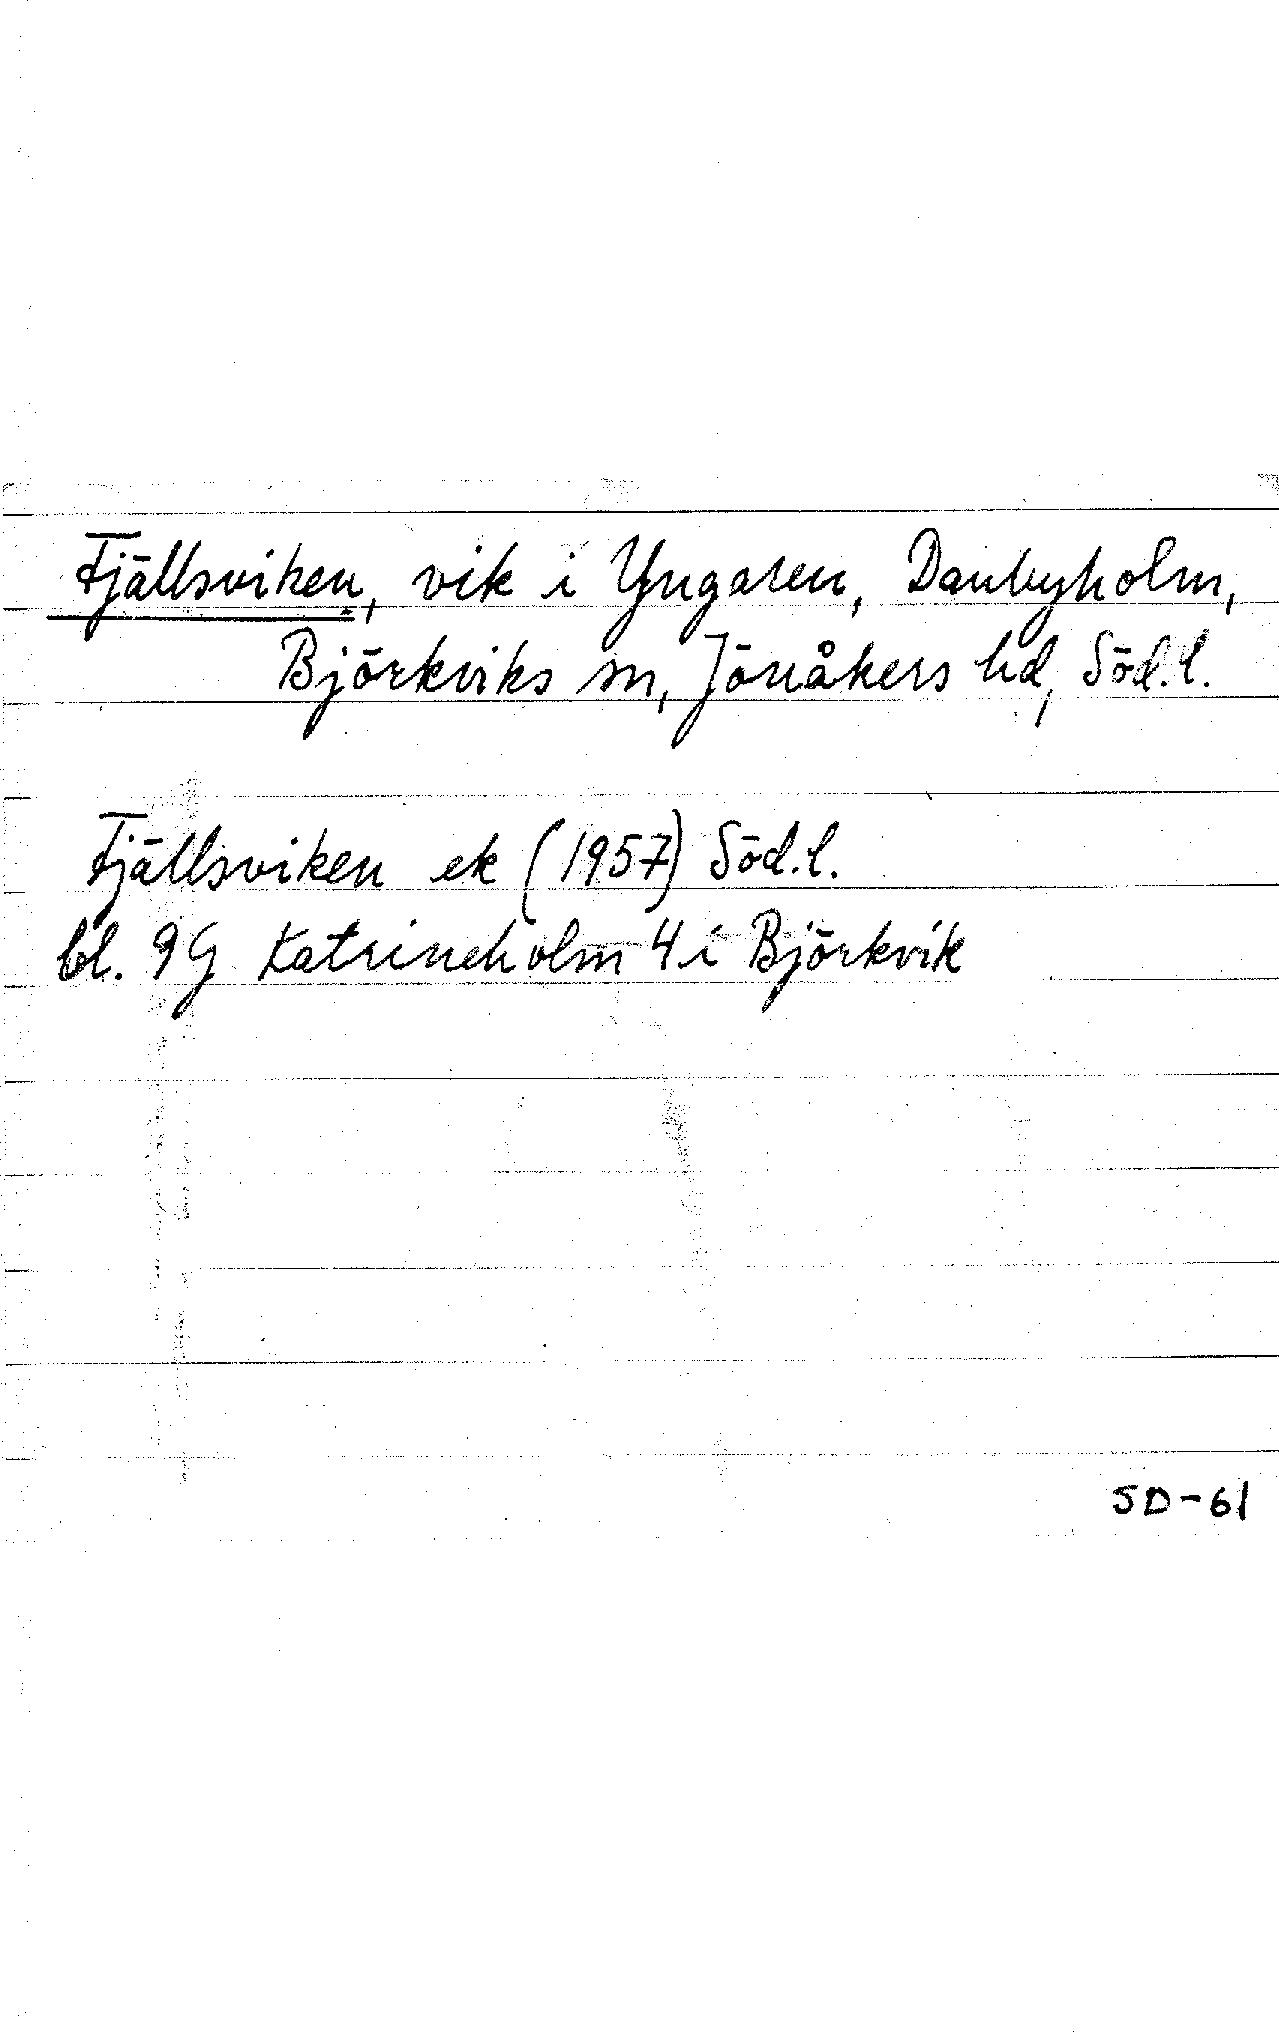 Fjällsviken, vik i Yngaren, Danbyholm,
Björkviks sn, Jönåkers hd, Söd.l.
Fjällsviken ek (1957) Söd.l.
bl. 9G Katrineholm 4i Björkvik
SD-61